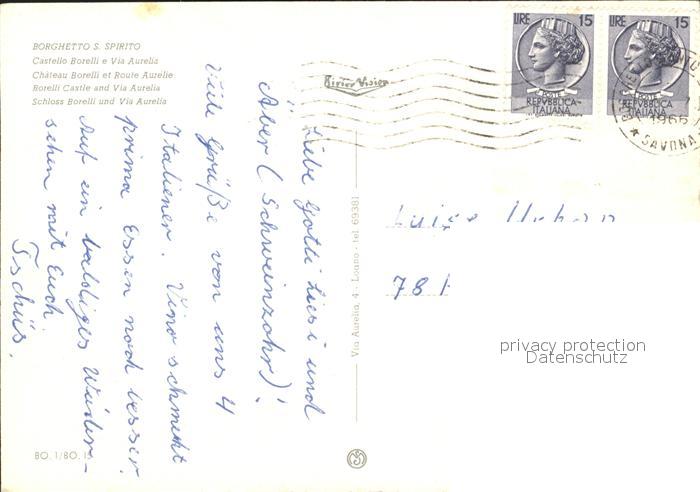 BORGHETTO S. SPIRITO
Castello Borelli e Via Aurelia
Château Borelli et Route Aurelie
Borelli Castle and Via Aurelia
Schloss Borelli und Via Aurelia
Liebe Gotti Liesi und
Aber (Schweinzohr)!
Viele Grüße von uns 4
Italiener. Vino schmeckt
prima Essen noch besser
Auf ein baldiges Wieder-
sehen mit Euch.
Tschüs.
BO. 1/BO.
Via Aurelia, 4 - Loano - tel. 69381
LIRE 15
REPVBBLICA
ITALIANA
LIRE 15
REPVBBLICA
ITALIANA
1966
SAVONA
Luise
781
privacy protection
Datenschutz